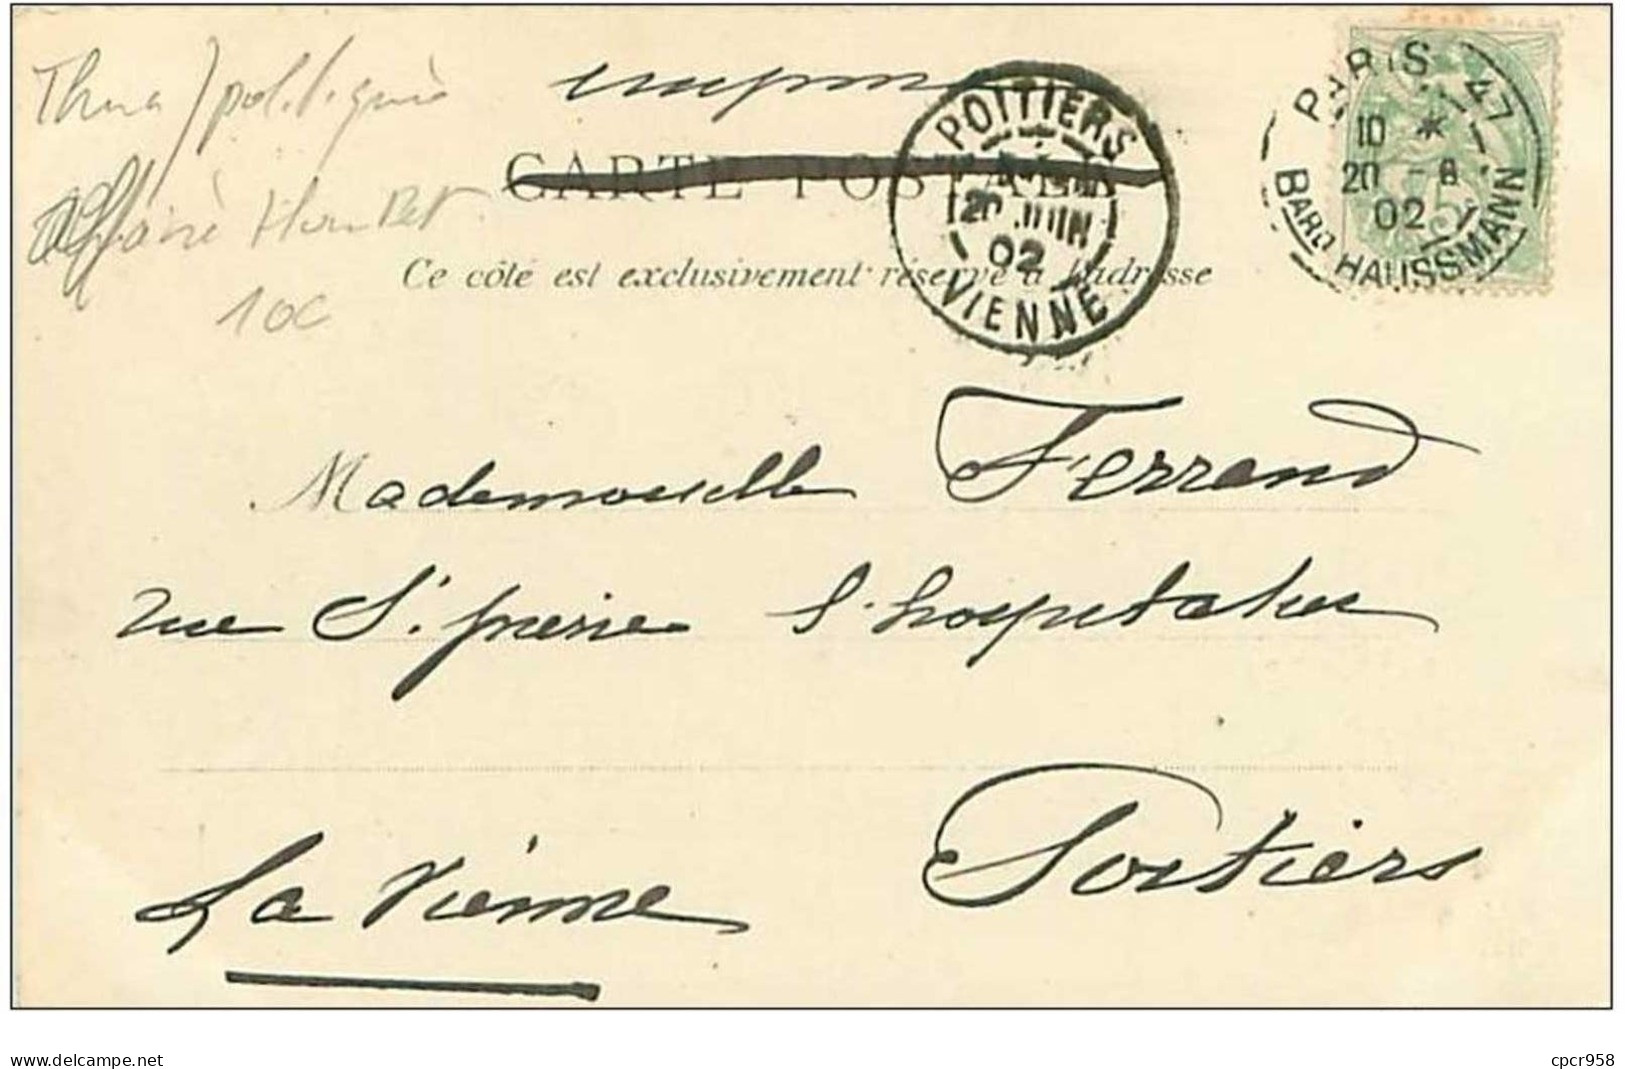 Thema / politique
affaire Humbert
10c
CARTE POSTALE
Ce côté est exclusivement réservé à l'adresse
POITIERS
20 JUIN
02
VIENNE
PARIS 47
10 *
20 - 6
02
BARD HAUSSMANN
Mademoiselle Ferrand
rue St. pierre l'hospitalier
Poitiers
La Vienne
www.delcampe.net
cpcr958